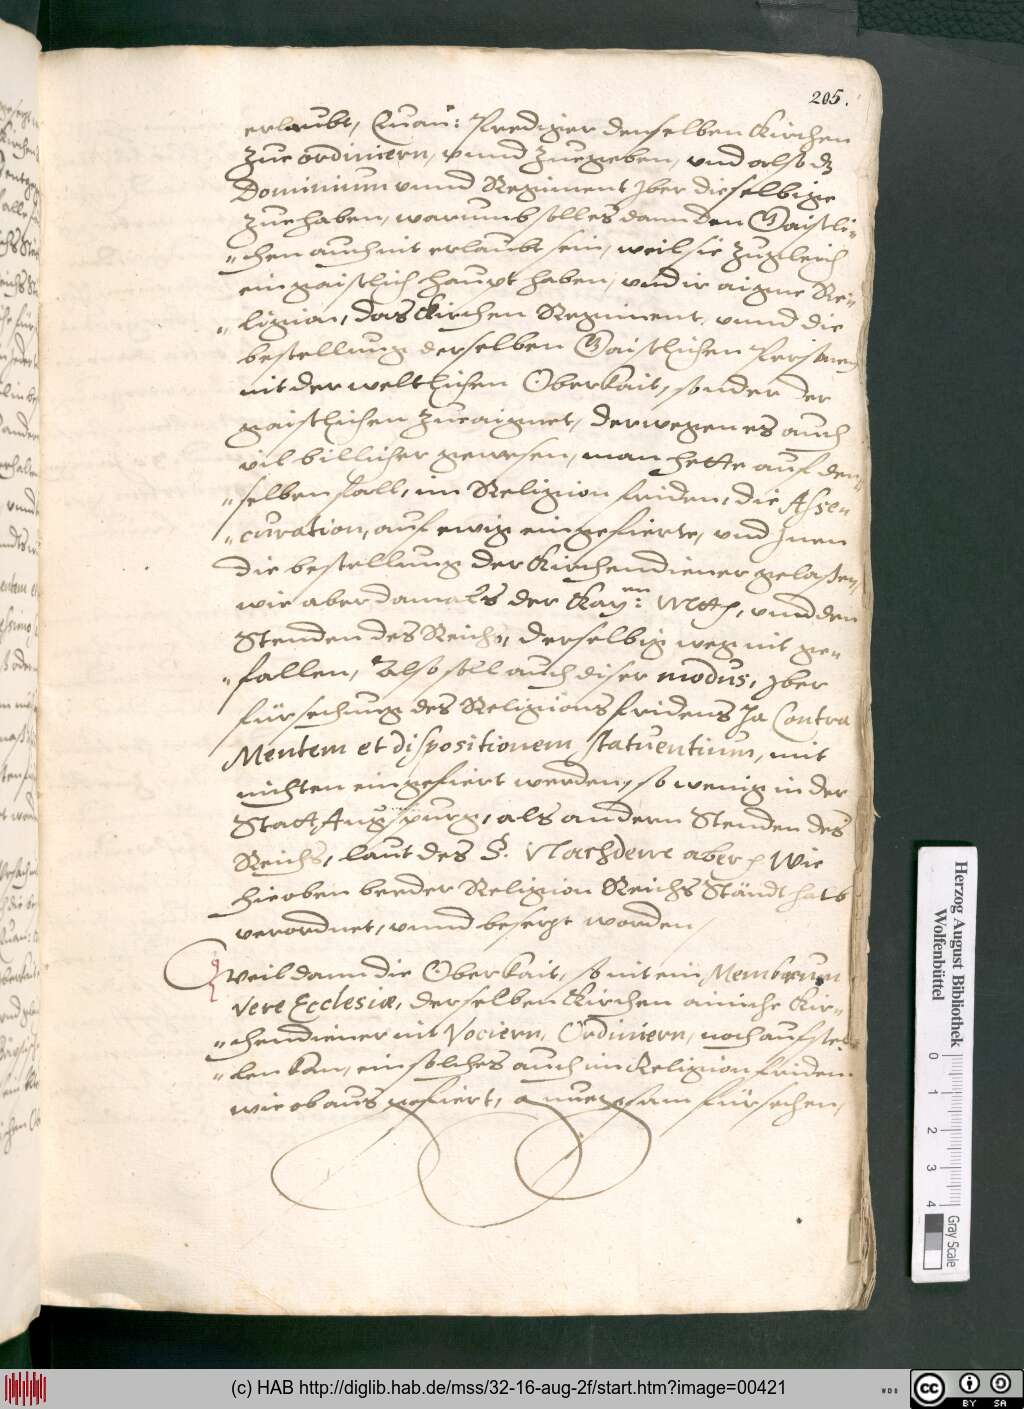 205.
erlaubt, Euan: Prediger denselben Kirchen
zue ordiniern, vnnd zuegeben, vnd also dz
Dominium vnnd Regiment yber dieselbige
zuehaben, warumb soll es dann den Gaistli-
chen auch nit erlaubt sein, weil sie zugleich
ein gaistlich haupt haben, vnd ir aigne Re-
ligion, das Kirchen Regiment, vnnd die
bestellung derselben Gaistlichen Persenen
nit der weltlichen Oberkait, sonder der
gaistlichen zueaignet, derwegen es auch
vil billicher gewesen, man hette auf den-
selben fall, im Religion friden, die Asse-
curation, auf ewig eingefierte, vnd Inen
die bestellung der Kirchendiener gelaßen,
wie aber damals der Kay:en Mtt, vnd den
Stenden des Reichs, derselbig weg nit ge-
fallen, Also soll auch diser modus, yber
fürsechung des Religions fridens Ja Contra
Mentem et dispositionem, statuentium, mit
nichten eingefiert werden, so wenig in der
Statt Augspurg, als andern Stenden des
Reichs, laut des §. Nachdeme aber Wie
hieoben beeder Religion Reichs Ständt halb
verordnet, vnnd besezt worden,
weil dann die Oberkait, so nit ein Membrum
vere Ecclesiæ, derselben Kirchen ainiche Kir-
chendiener nit Vociern, Ordiniern, noch aufstel-
len kan, ein solches auch im Religion friden
wie ob ausgefiert, gnuegsam fürsechen,
Herzog August Bibliothek
Wolfenbüttel
0 1 2 3 4
Gray Scale
(c) HAB http://diglib.hab.de/mss/32-16-aug-2f/start.htm?image=00421
WDB
cc BY SA